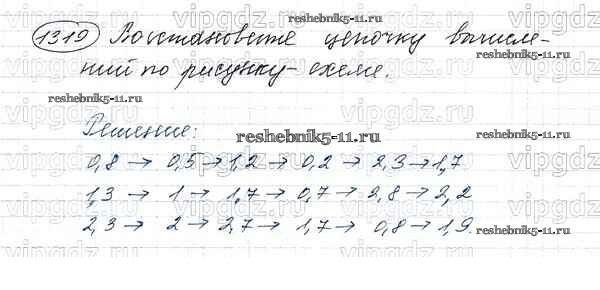 1319 Восстановите цепочку вычисле-
ний по рисунку-схеме.
Решение:
0,8 → 0,5 → 1,2 → 0,2 → 2,3 → 1,7
1,3 → 1 → 1,7 → 0,7 → 2,8 → 2,2
2,3 → 2 → 2,7 → 1,7 → 0,8 → 1,9.
vipgdz.ru
reshebnik5-11.ru